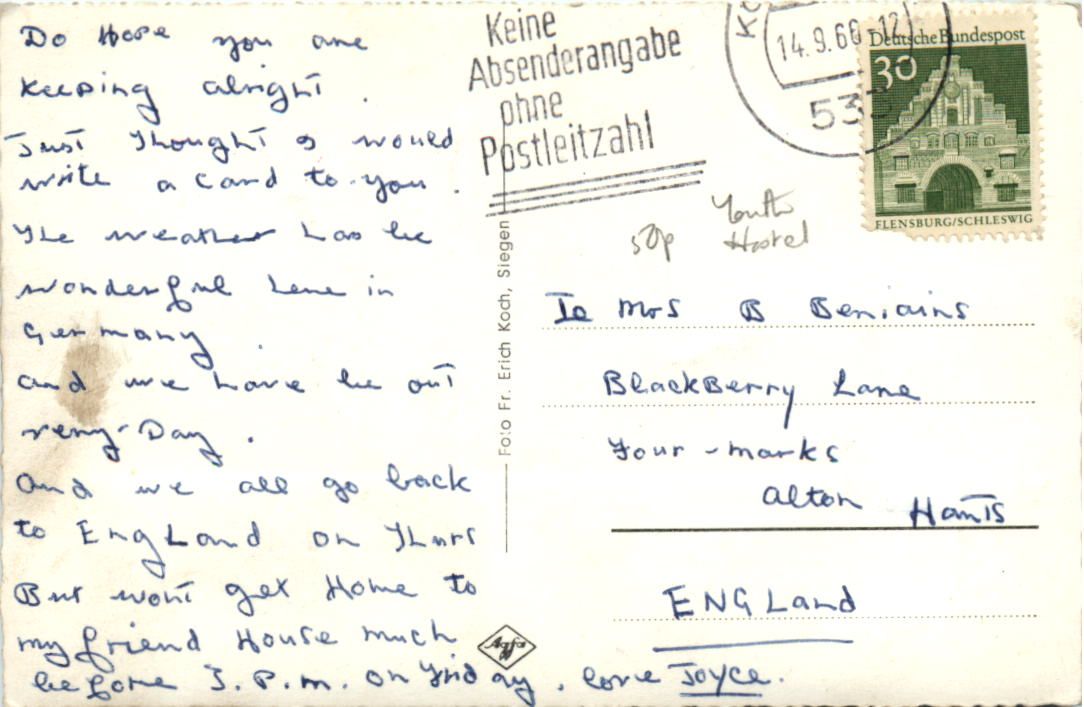 Do Hope you are
keeping alright.
Just Thought I would
write a card to you.
The weather has be
wonderful here in
Germany
and we have be out
very-Day.
And we all go back
to England on Thurs
But wont get Home to
my friend House much
before 3.P.m. on Friday. love Joyce.
Keine
Absenderangabe
ohne
Postleitzahl
14.9.66-12
533
Deutsche Bundespost
30
FLENSBURG/SCHLESWIG
50p
Youth
Hostel
Foto Fr. Erich Koch, Siegen
Agfa
To Mrs B
BlackBerry Lane
Four-marks
Alton Hants
ENGLand